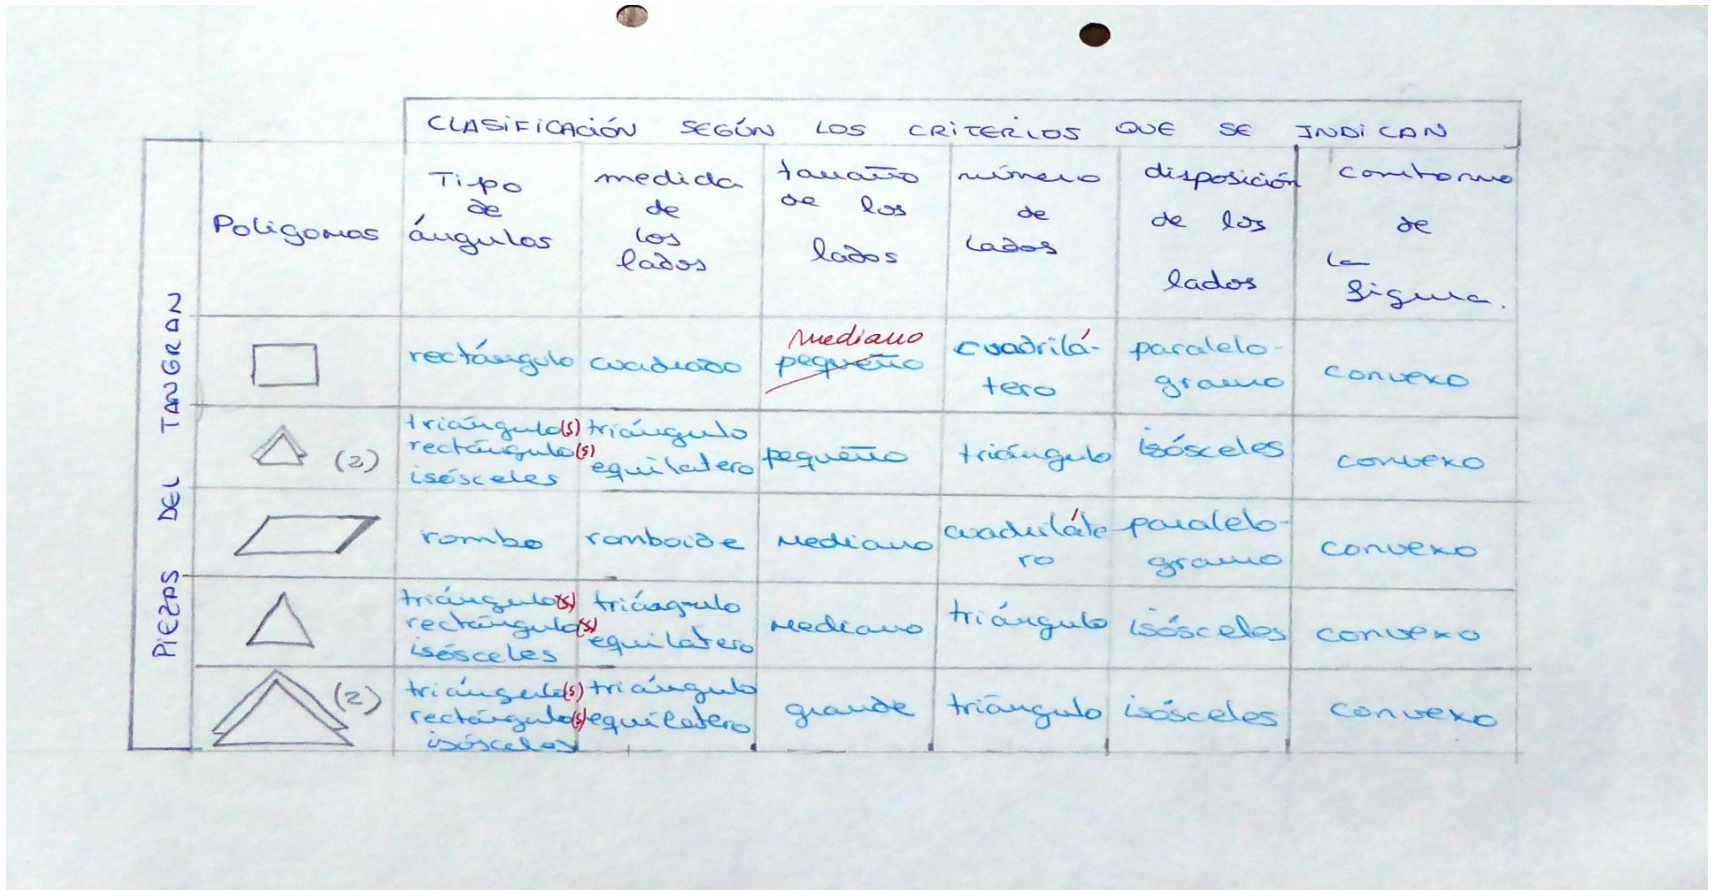 CLASIFICACIÓN SEGÚN LOS CRITERIOS QUE SE INDICAN
PIEZAS DEL TANGRAN
Poligonos
Tipo
de
ángulos
medida
de
los
lados
tamaño
de los
lados
número
de
lados
disposición
de los
lados
contorno
de
la
figura.
rectángulo
cuadrado
mediano
pequeño
cuadrilá-
tero
paralelo-
gramo
convexo
(2)
triángulo(s)
rectángulo(s)
isósceles
triángulo
equilatero
pequeño
triángulo
isósceles
convexo
rombo
romboide
mediano
cuadriláte
ro
paralelo-
gramo
convexo
triángulo(s)
rectángulo(s)
isósceles
triángulo
equilatero
mediano
triángulo
isósceles
convexo
(2)
triángulo(s)
rectángulo(s)
isósceles
triángulo
equilatero
grande
triángulo
isósceles
convexo